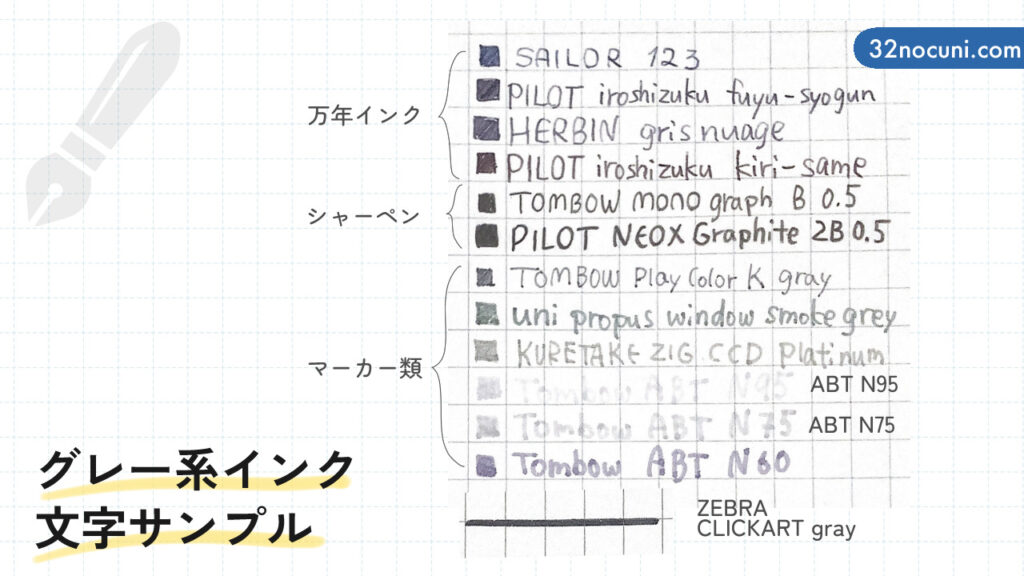 32nocuni.com
万年インク
SAILOR 123
PILOT iroshizuku fuyu-syogun
HERBIN gris nuage
PILOT iroshizuku kiri-same
シャーペン
TOMBOW mono graph B 0.5
PILOT NEOX Graphite 2B 0.5
マーカー類
TOMBOW Play Color K gray
uni propus window smoke grey
KURETAKE ZIG CCD Platinum
Tombow ABT N95 ABT N95
Tombow ABT N75 ABT N75
Tombow ABT N60
グレー系インク
文字サンプル
ZEBRA
CLICKART gray